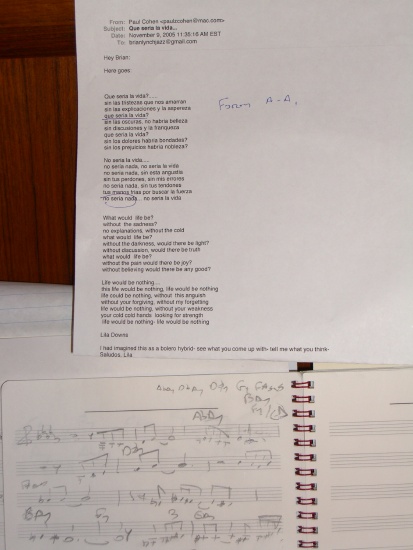 From: Paul Cohen <paulzcohen@mac.com>
Subject: Que seria la vida...
Date: November 9, 2005 11:38:16 AM EST
To: brianlynchjazz@gmail.com
Hey Brian:
Here goes:
Que seria la vida?.....
sin las tristezas que nos amarran
sin las explicaciones y la aspereza
que seria la vida?
sin las oscuras, no habria belleza
sin discusiones y la franqueza
que seria la vida?
sin los dolores habria bondades?
sin los prejuicios habria nobleza?
Form A-A,
No seria la vida....
no seria nada, no seria la vida
no seria nada, sin esta angustia
sin tus perdones, sin mis errores
no seria nada, sin tus tendones
tus manos frias por buscar la fuerza
no seria nada... no seria la vida
What would life be?
without the sadness?
no explanations, without the cold
what would life be?
without the darkness, would there be light?
without discussion, would there be truth
what would life be?
without the pain would there be joy?
without believing would there be any good?
Life would be nothing....
this life would be nothing, life would be nothing
life could be nothing, without this anguish
without your forgiving, without my forgetting
life would be nothing, without your weakness
your cold hands looking for strength
life would be nothing- life would be nothing
Lila Downs
I had imagined this as a bolero hybrid- see what you come up with- tell me what you think-
Saludos, Lila